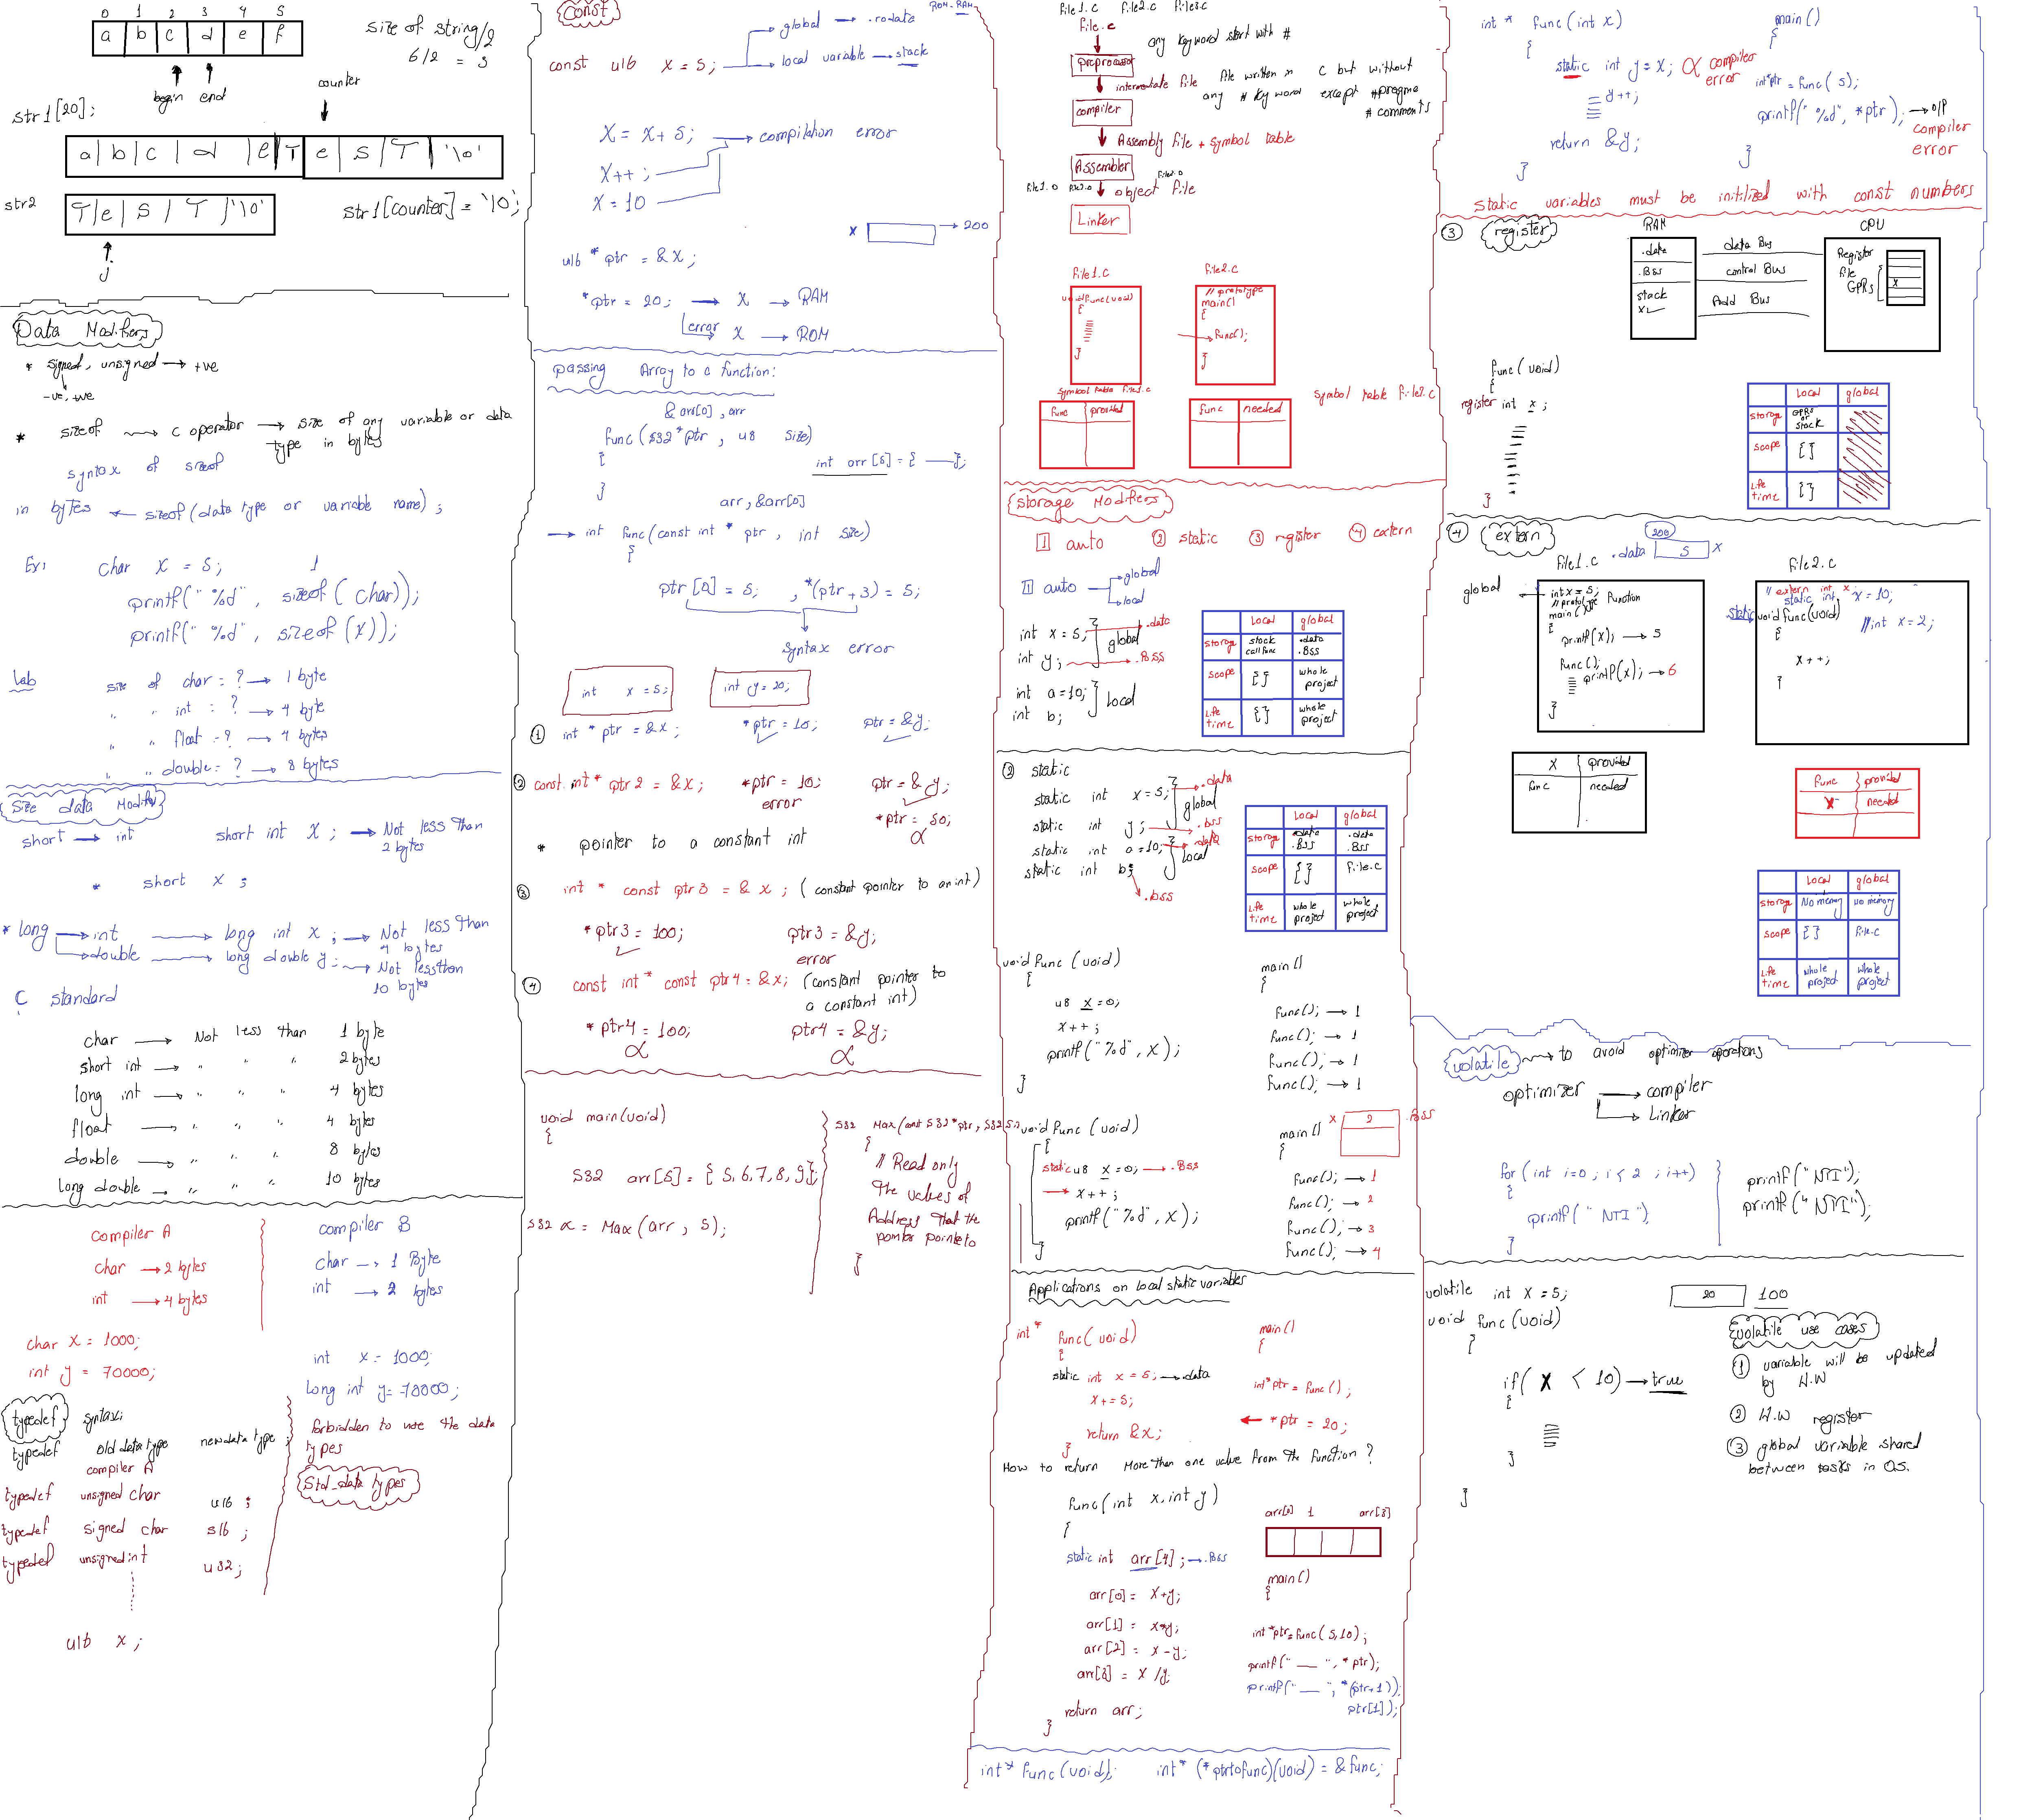 0 1 2 3 4 5
a b c d e f
begin end
size of string/2
6/2 = 3
counter
str1[20];
a|b|c|d|e|T|e|s|T|'\0'
str2
T|e|S|T|'\0'
str1[counter] = '\0';
j
Data Modifiers
* signed, unsigned → +ve
-ve, +ve
* sizeof → C operator → size of any variable or data
type in bytes
syntax of sizeof
in bytes ← sizeof(data type or variable name);
Ex: char x = 5; 1
printf("%d", sizeof(char));
printf("%d", sizeof(x));
Lab
size of char = ? → 1 byte
" " int = ? → 4 byte
" " float = ? → 4 bytes
" " double = ? → 8 bytes
Size data Modifier
short → int short int x; → Not less than
2 bytes
* short x;
* long → int → long int x; → Not less than
4 bytes
→ double → long double y; → Not less than
10 bytes
C standard
char → Not less than 1 byte
short int → " " " 2 bytes
long int → " " " 4 bytes
float → " " " 4 bytes
double → " " " 8 bytes
long double → " " " 10 bytes
compiler A
char → 2 bytes
int → 4 bytes
char x = 1000;
int y = 70000;
compiler B
char → 1 Byte
int → 2 bytes
int x = 1000;
long int y = 70000;
typedef syntax:
typedef old data type new data type;
compiler A
typedef unsigned char u16;
typedef signed char s16;
typedef unsigned int u32;
u16 x;
forbidden to use the data
types
Std_data types
Const
ROM RAM
global → .rodata
const u16 x = 5;
local variable → stack
x = x + 5; → compilation error
x++;
x = 10
x → 200
u16 * ptr = &x;
*ptr = 20; → x → RAM
error x → ROM
passing Array to a function:
&arr[0], arr
func(s32 *ptr, u8 size)
{
int arr[5] = { — };
}
arr, &arr[0]
→ int func(const int * ptr, int size)
{
ptr[0] = 5; , *(ptr+3) = 5;
syntax error
int x = 5; int y = 20;
① int * ptr = &x; *ptr = 10; ptr = &y;
② const int * ptr2 = &x; *ptr = 10; ptr = &y;
error
*ptr = 50;
* pointer to a constant int
③ int * const ptr3 = &x; (constant pointer to an int)
*ptr3 = 100; ptr3 = &y;
error
④ const int * const ptr4 = &x; (constant pointer to
a constant int)
*ptr4 = 100; ptr4 = &y;
void main(void)
{
s32 arr[5] = {5,6,7,8,9};
s32 x = Max(arr, 5);
s32 Max(const s32 *ptr, s32
{
// Read only
The values of
Address that the
pointer points to
}
File1.c File2.c File3.c
file.c
any keyword start with #
preprocessor
intermediate file
file written in C but without
any # keyword except #pragma
# comments
compiler
Assembly file + symbol table
Assembler
File1.o File2.o File3.o
object file
Linker
File1.c
void func(void)
{
}
File2.c
// prototype
main()
{
func();
}
symbol table File1.c
func provided
func needed
symbol table file2.c
Storage Modifiers
① auto ② static ③ register ④ extern
① auto → global
→ local
int x = 5; → .data
int y; → .BSS
global
int a = 10;
int b;
local
Local global
storage stack call func .data .BSS
scope {} whole project
life time {} whole project
② static
static int x = 5; → .data
static int y; → .bss
global
static int a = 10; → .data
static int b;
local
.bss
Local global
storage .data .BSS .data .BSS
scope {} file.c
life time whole project whole project
void func(void)
{
u8 x = 0;
x++;
printf("%d", x);
}
main()
{
func(); → 1
func(); → 1
func(); → 1
func(); → 1
void func(void)
{
static u8 x = 0; → .BSS
x++;
printf("%d", x);
}
main()
{
x 2 .BSS
func(); → 1
func(); → 2
func(); → 3
func(); → 4
Applications on local static variables
int* func(void)
{
static int x = 5; → data
x += 5;
return &x;
}
main()
{
int *ptr = func();
*ptr = 20;
How to return More than one value from the function?
func(int x, int y)
{
static int arr[4]; → .BSS
arr[0] = x+y;
arr[1] = x*y;
arr[2] = x-y;
arr[3] = x/y;
return arr;
}
arr[0] 1 arr[3]
main()
{
int *ptr = func(5,10);
printf("—", *ptr);
printf("—", *(ptr+1));
ptr[1]);
int* func(void); int* (*ptrtofunc)(void) = &func;
int * func(int x)
{
static int y = x; compiler
error
y++;
return &y;
}
main()
{
int *ptr = func(5);
printf("%d", *ptr); → o/p
compiler
error
}
static variables must be initilized with const numbers
③ register
RAM
.data
.BSS
stack
x
data Bus
control Bus
Add Bus
CPU
Register
file
GPRs
x
func(void)
{
register int x;
}
Local global
storage GPRs or stack
scope {}
life time {}
④ extern
200
.data 5 x
File1.c
global
int x = 5;
// prototype function
main()
{
printf(x); → 5
func();
printf(x); → 6
}
File2.c
// extern int x
static int x = 10;
static void func(void)
{
// int x = 2;
x++;
}
x provided
func needed
func provided
x needed
Local global
storage No memory no memory
scope {} file.c
life time whole project whole project
volatile → to avoid optimizer operations
optimizer → compiler
→ Linker
for(int i=0; i<2; i++)
{
printf("NTI");
}
printf("NTI");
printf("NTI");
volatile int x = 5;
void func(void)
{
if(x < 10) → true
{
}
}
20 100
volatile use cases
① variable will be updated
by H.W
② H.W register
③ global variable shared
between tasks in O.S.